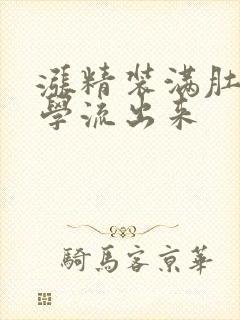 漲精装满肚
學流出来
騎馬客京華